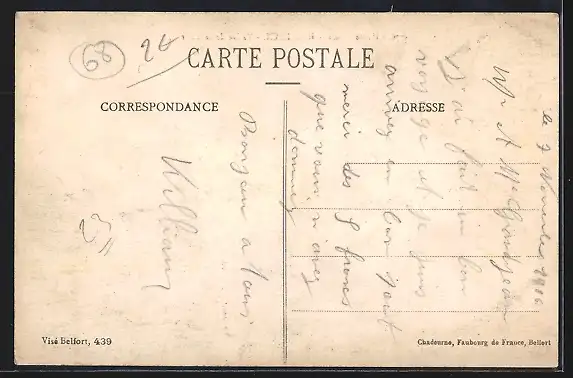 68
26
CARTE POSTALE
CORRESPONDANCE
ADRESSE
le 7 Novembre 1916
Mr et Mme Grandjean
J'ai fait un bon
voyage et je suis
arrivé en bon port
merci des 5 francs
que vous m'avez
donnez
Bonjour a tous
William
Visé Belfort, 439
Chadourne, Faubourg de France, Belfort